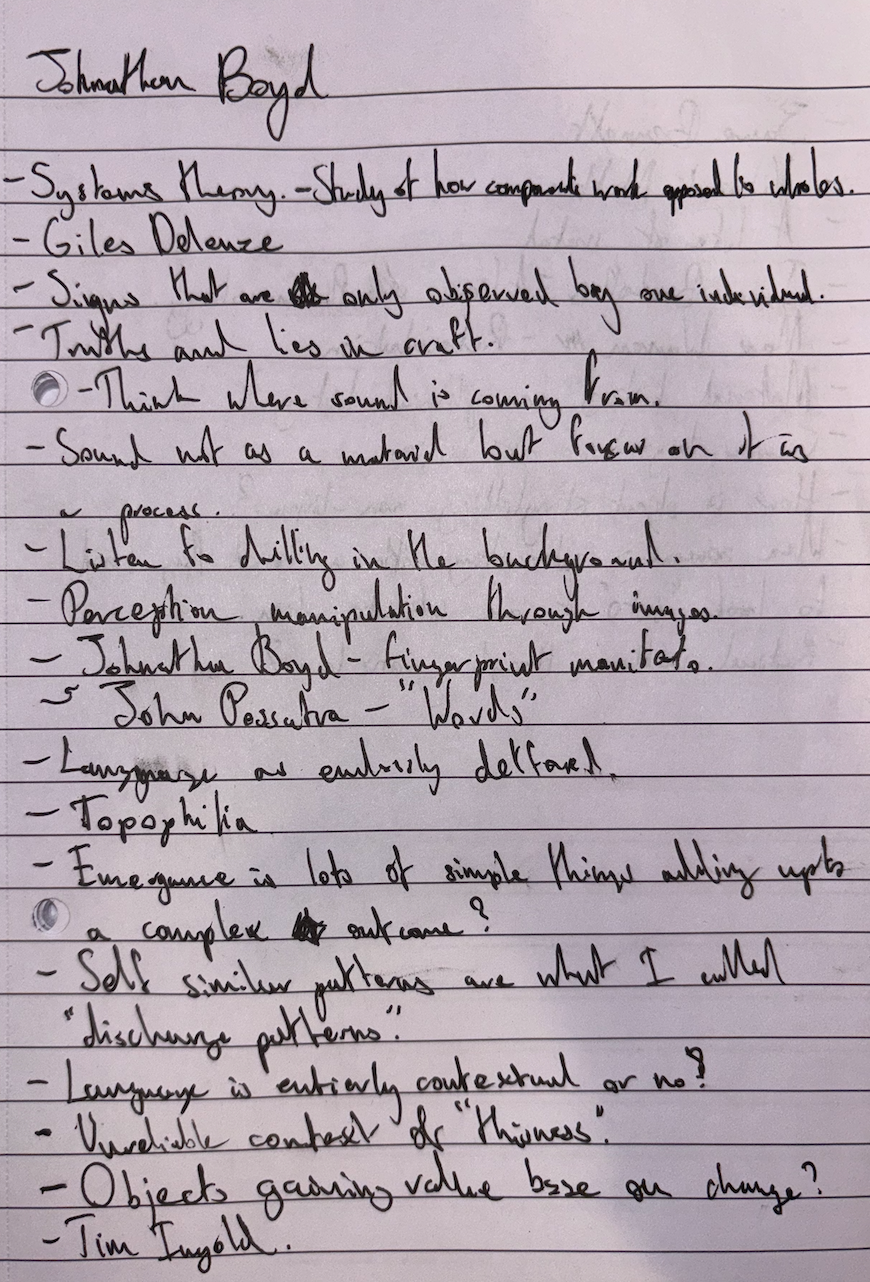 Johnathan Boyd
- Systems theory. - Study of how components work opposed to wholes.
- Giles Deleuze
- Signs that are only observed by one individual.
- Truths and lies in craft.
- Think where sound is coming from.
- Sound not as a material but focus on it as
a process.
- Listen to drilling in the background.
- Perception manipulation through images.
- Johnathan Boyd - fingerprint
- John - "Words"
- Language as
- Topophilia
- Emergance is lots of simple things adding upto
a complex outcome?
- Self similar patterns are what I called
"discharge patterns".
- Language is entierly contextual or no?
- Unreliable context of "thisness".
- Objects gaining value base on change?
- Tim Ingold.